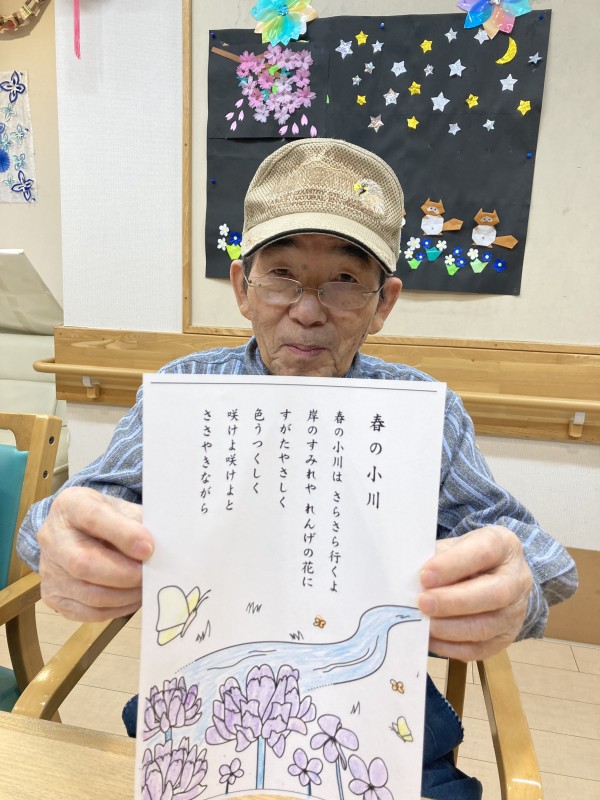 春の小川
春の小川は さらさら行くよ
岸のすみれや れんげの花に
すがたやさしく
色うつくしく
咲けよ咲けよと
ささやきながら